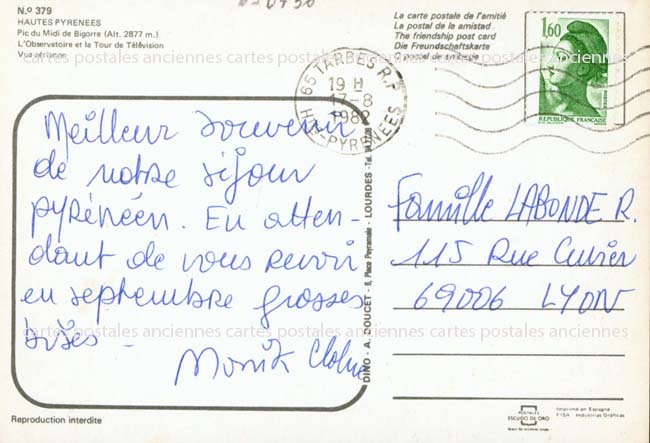 N.º 379
HAUTES PYRENEES
Pic du Midi de Bigorre (Alt. 2877 m.)
L'Observatoire et la Tour de Télévision
Vue aérienne
La carte postale de l'amitié
La postal de la amistad
The friendship post card
Die Freundschaftskarte
1,60
POSTES
REPUBLIQUE FRANÇAISE
65 TARBES R.P.
19 H
17-8
1982
HTES-PYRENEES
cartes postales anciennes cartes postales anciennes cartes postales anciennes
Meilleur souvenir
de notre séjour
pyrénéen. En atten-
dant de vous revoir
en septembre grosses
bises -
Monik
DINO - A. DOUCET - 6, Place Peyramale - LOURDES - Tel.
Famille LABONDE R.
115 Rue Cuvier
69006 LYON
cartes postales anciennes cartes postales anciennes cartes postales anciennes
Reproduction interdite
POSTALES
ESCUDO DE ORO
Imprimé en Espagne
FISA - Industrias Gráficas